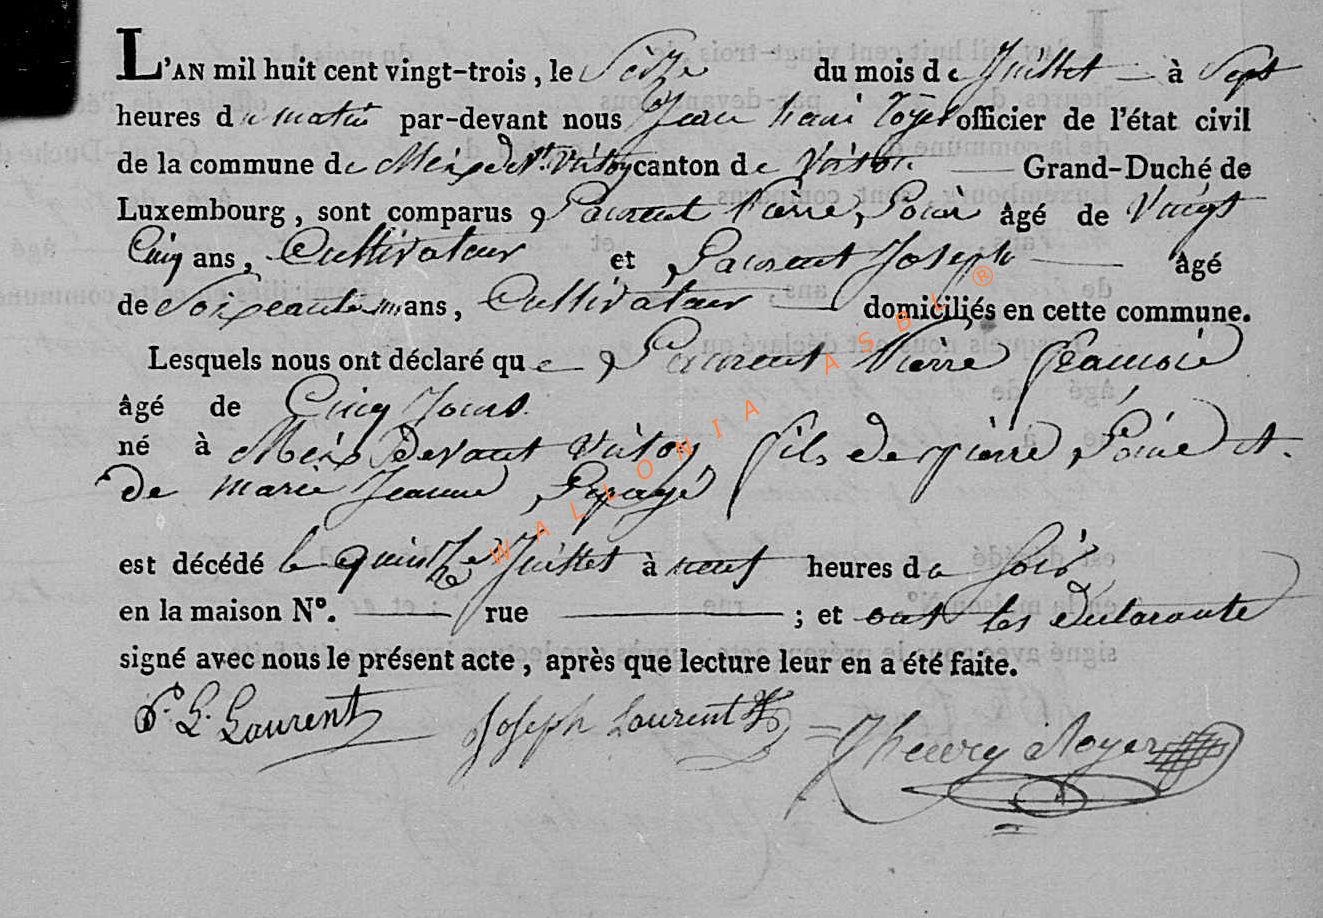 L'AN mil huit cent vingt-trois, le Seize du mois de Juillet à Sept
heures du matin par-devant nous Jean henri officier de l'état civil
de la commune de Meix dev.t Virton canton de Virton Grand-Duché de
Luxembourg, sont comparus Laurent Pierre, âgé de Vingt
Cinq ans, Cultivateur et Laurent Joseph âgé
de Soixante ans, Cultivateur domiciliés en cette commune.
Lesquels nous ont déclaré que Laurent Pierre
âgé de Cinq Jours.
né à Meix Devant Virton fils de pierre et
de marie Jeanne
est décédé le quinze Juillet à neuf heures du Soir
en la maison N°. rue ; et ont les Declarants
signé avec nous le présent acte, après que lecture leur en a été faite.
P. L. Laurent Joseph Laurent Jhenry
WALLONIA ASBL ®